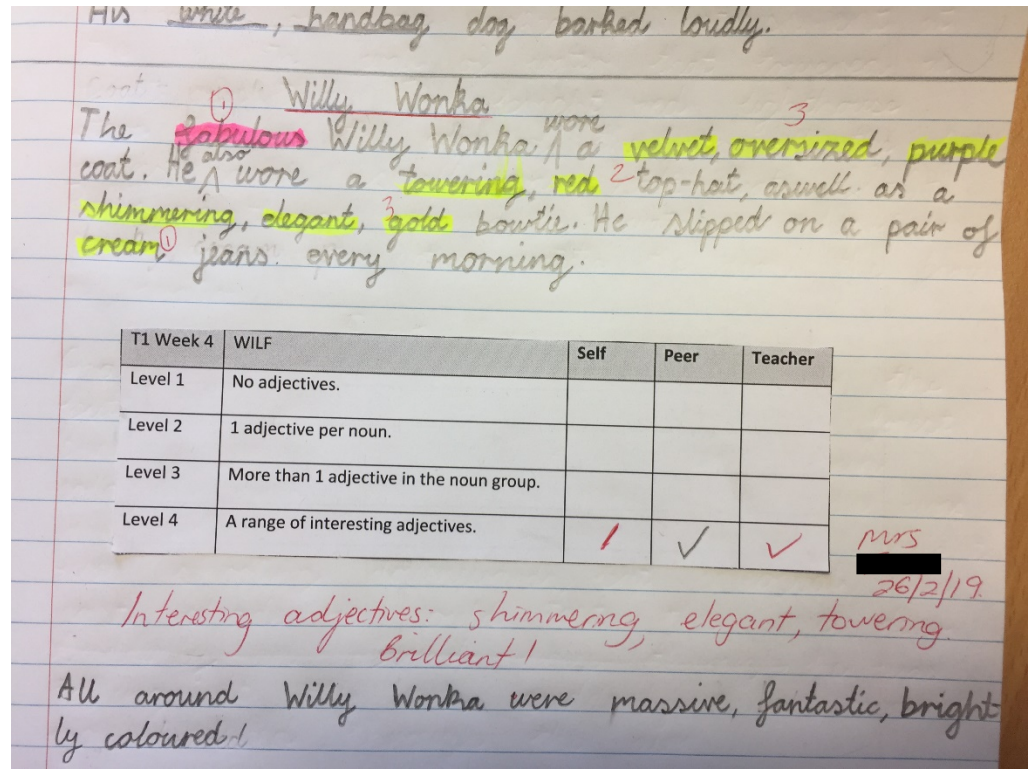 His white, handbag dog barked loudly.
Willy Wonka
1
The fabulous Willy Wonka wore a velvet, oversized, purple
3
coat. He also wore a towering, red 2 top-hat, aswell as a
shimmering, elegant, 3 gold bowtie. He slipped on a pair of
cream 1 jeans every morning.
T1 Week 4 WILF Self Peer Teacher
Level 1 No adjectives.
Level 2 1 adjective per noun.
Level 3 More than 1 adjective in the noun group.
Level 4 A range of interesting adjectives.
Mrs
26/2/19.
Interesting adjectives: shimmering, elegant, towering.
Brilliant!
All around Willy Wonka were massive, fantastic, bright
ly coloured